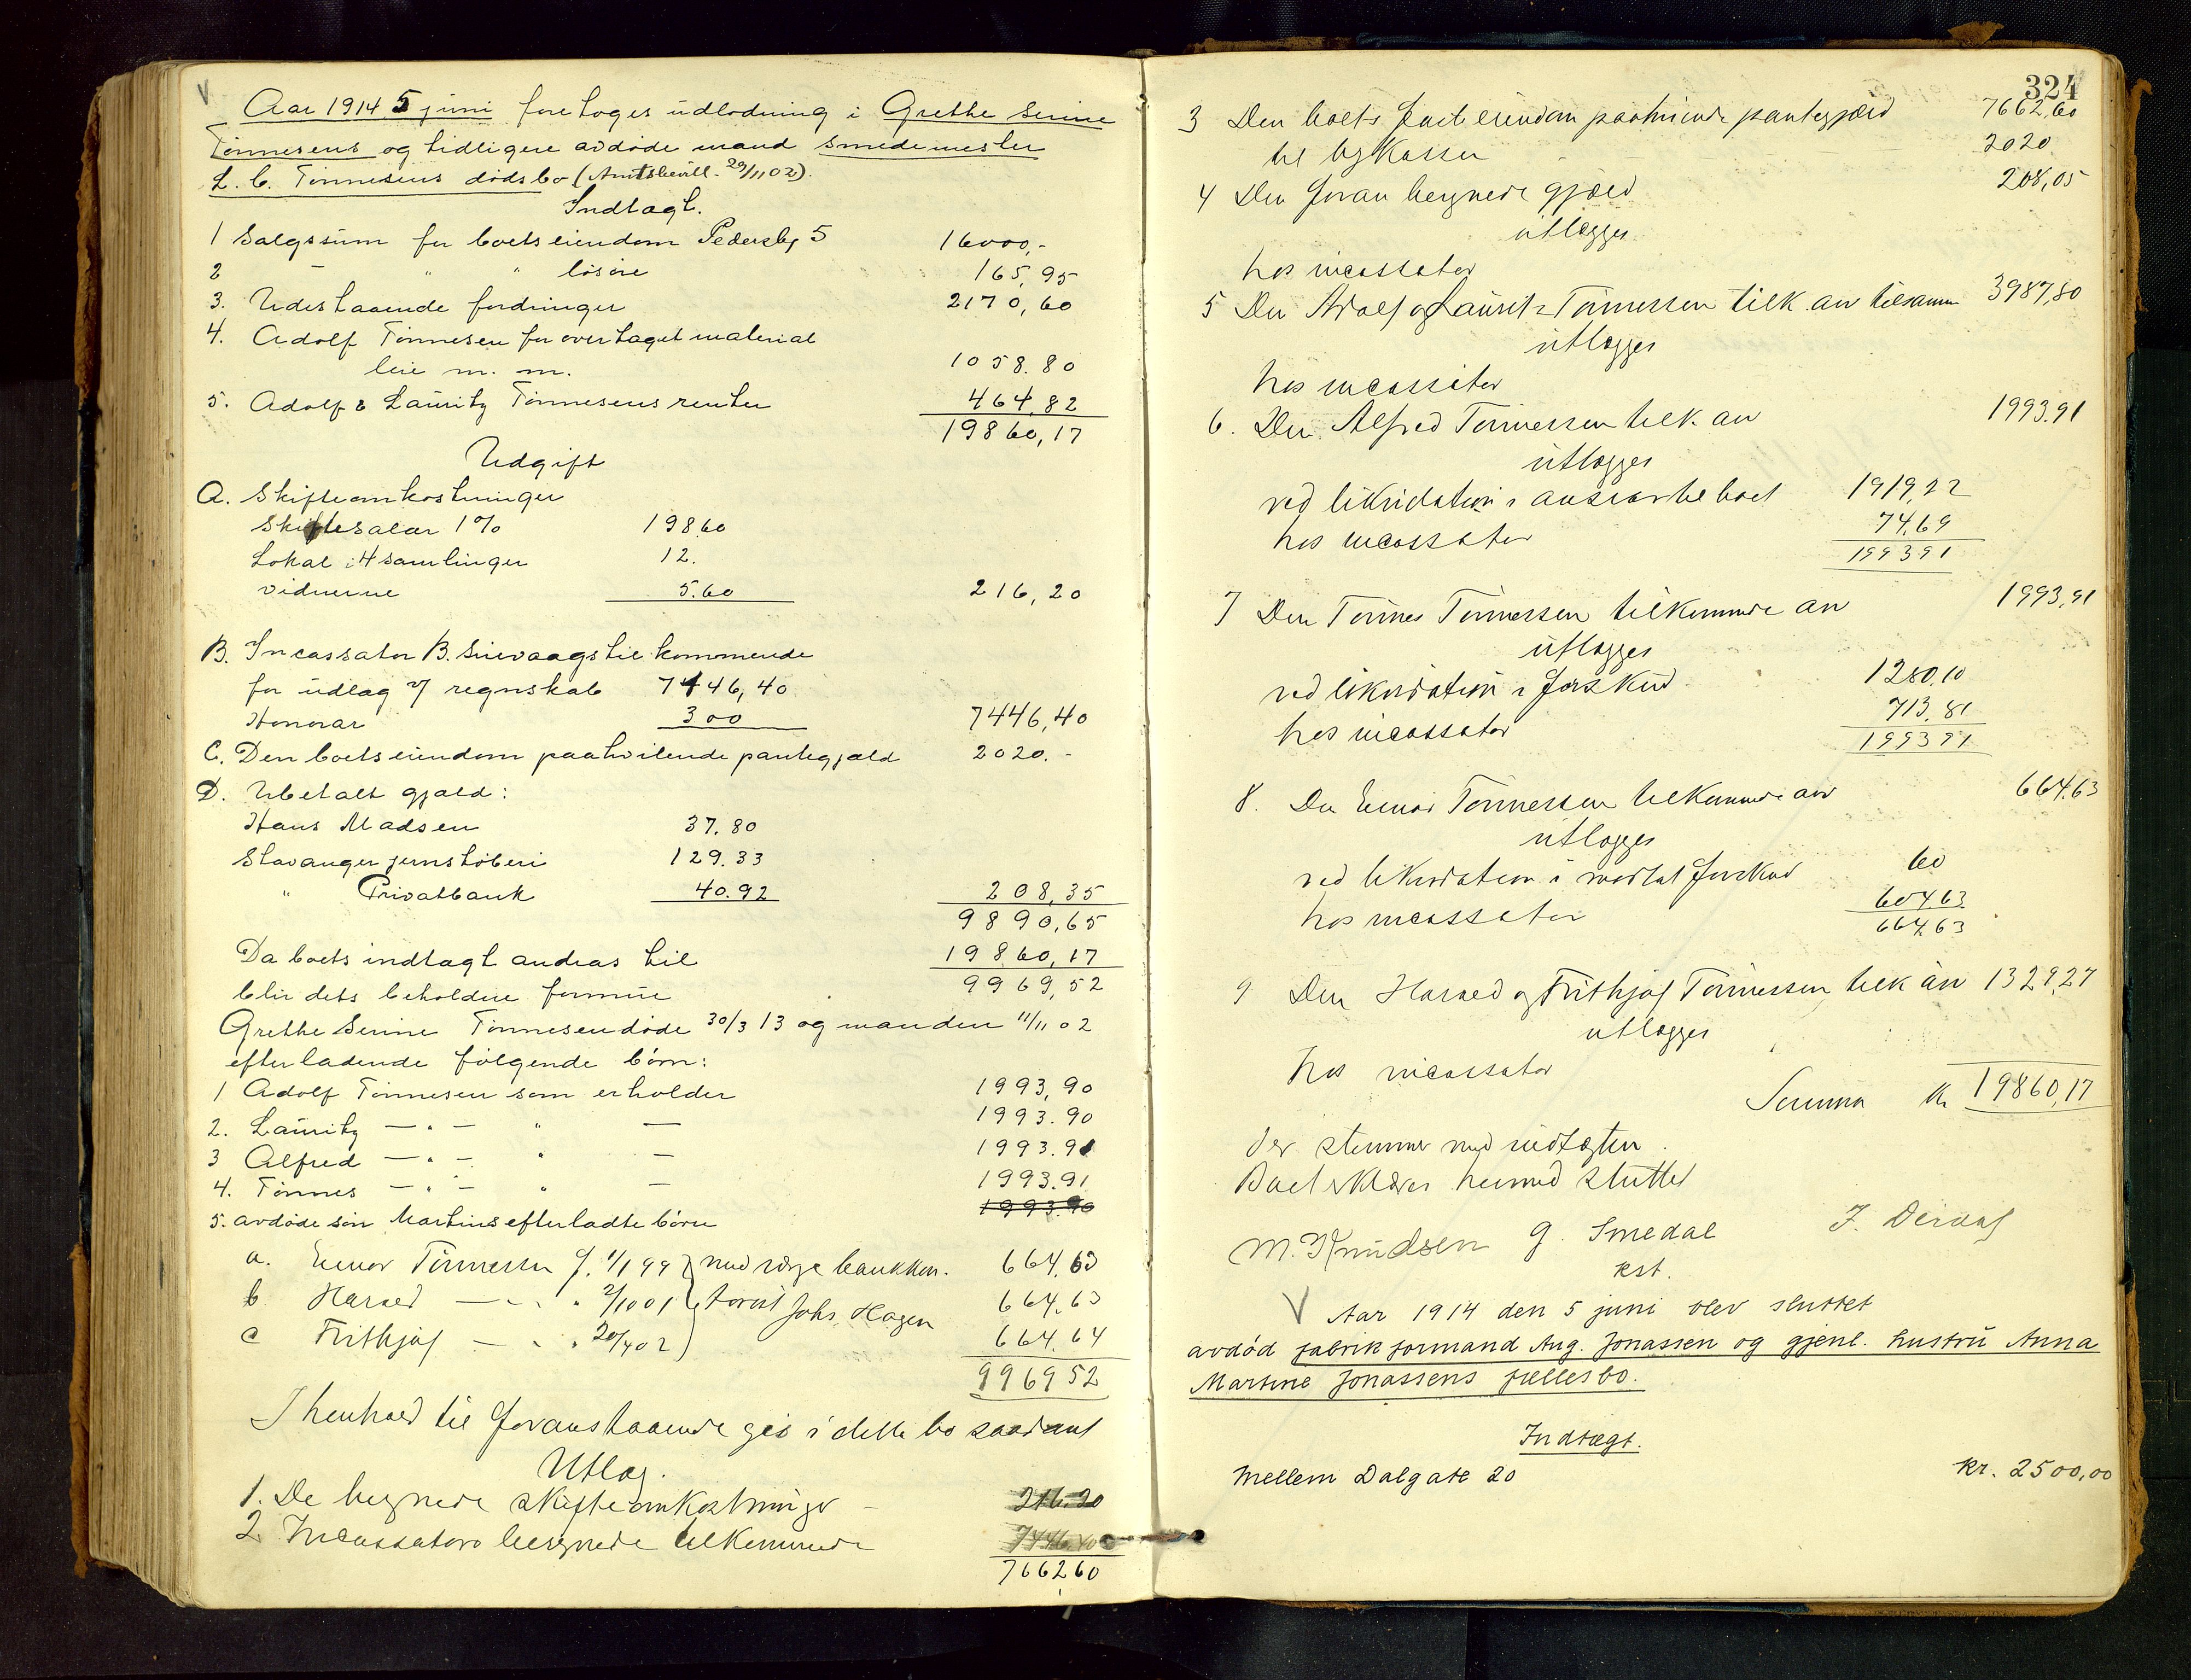 Aar 1914 5 juni foretoges udlodning i Grethe Serine
Tønnesens og tidligere avdøde mand smedemester
L. C. Tønnesens dødsbo (Amtsbevill. 29/11 02).
Indtægt.
1 Salgssum for boets eiendom Pedersbg 5 16000,-
2 — " " løsøre 165,95
3. Udestaaende fordringer 2170,60
4. Adolf Tønnesen for overtaget material
leie m. m. 1058.80
5. Adolf & Lauritz Tønnesens renter 464,82
19860,17
Udgift
A. Skifteomkostninger
Skiftesalær 1% 198.60
Lokal i 4 samlinger 12.
vidnerne 5.60 216,20
B. Incassator B. tilkommende
for udlag % regnskab 7146,40
Honorar 300 7446,40
C. Den boets eiendom paahvilende pantegjæld 2020.-
D. Ubetalt gjæld:
Hans Madsen 37.80
Stavanger jernstøberi 129.33
" Privatbank 40.92 208,35
9890,65
Da boets indtægt andras til 19860,17
blir dets beholdne formue 9969,52
Grethe Serine Tønnesen døde 30/3 13 og manden 11/11 02
efterladende følgende børn:
1 Adolf Tønnesen som erholder 1993,90
2. Lauritz — " — " — 1993.90
3 Alfred — " — " — 1993.91
4. Tønnes — " — " — 1993.91
1993.90
5. avdøde søn Martins efterladte børn
a. Einar Tønnessen f. 1/1 99 med værge bankkon. 664.63
b Harald — " — " 2/10 01 torist Johs. Hagen 664.63
c Frithjof — " — " 20/4 02 664.64
996952
I henhold til foranstaaende gis i dette bo saadant
Utlæg.
1. De beregnede skifteomkostninger – 216.20
2. Incassators beregnede tilkommende 7446.40
766260
324
7662,60
3 Den boets faste eiendom paahvilende pantegjæld
til bykassen 2020
4 Den foran beregnede gjæld 208,05
utlægges
hos incassator
5 Den Adolf og Lauritz Tønnessen tilk. arv tilsamm 3987,80
utlægges
hos incassator
6. Den Alfred Tønnessen tilk. arv 1993.91
utlægges
ved likvidation i ansvar til boet 1919,22
hos incassator 74,69
199391
7 Den Tønnes Tønnessen tilkommende arv 1993,91
utlægges
ved likvidation i forskud 1280,10
hos incassator 713,81
199391
8. Den Einar Tønnessen tilkommende arv 664.63
utlægges
ved likvidation i mottat forskud 60
hos incassator 604,63
664,63
9 Den Harald og Frithjof Tønnessen tilk arv 1329,27
utlægges
hos incassator
Summa Kr 19860,17
der stemmer med indtægten.
Boet erklæres hermed sluttet
M. Knudsen G. Smedal
kst.
V Aar 1914 den 5 juni blev sluttet
avdød fabrikformand Aug. Jonassen og gjenl. hustru Anna
Martine Jonassens fællesbo.
Indtægt.
Mellem Dalgate 20 Kr. 2500,00